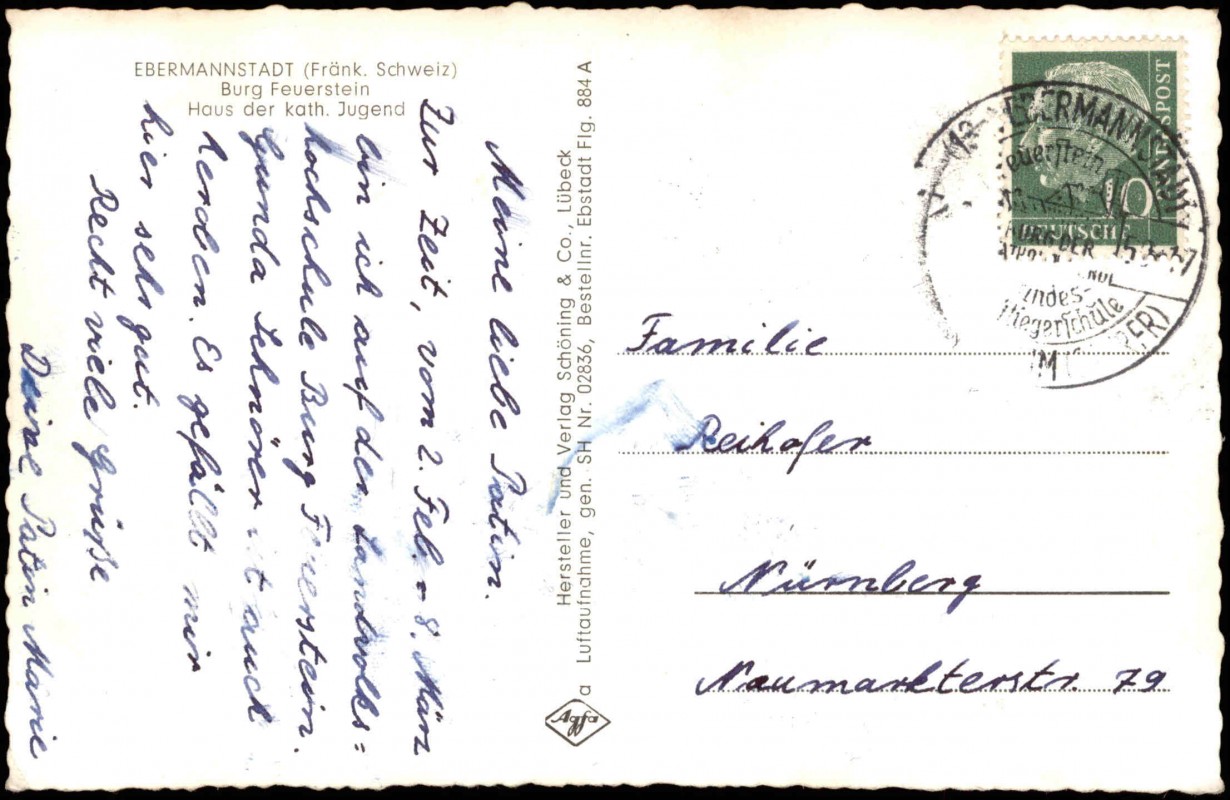 EBERMANNSTADT (Fränk. Schweiz)
Burg Feuerstein
Haus der kath. Jugend
Meine liebe Patin.
Zur Zeit, vom 2. Feb. - 8. März
bin ich auf der Landvolks=
hochschule Burg Feuerstein.
Gunda Schnörer ist auch
herben. Es gefällt mir
hier sehr gut.
Recht viele Grüße
Deine Patin Marie
Hersteller und Verlag Schöning & Co., Lübeck
a Luftaufnahme, gen. SH Nr. 02836, Bestellnr. Ebstadt Flg. 884 A
Agfa
DEUTSCHE
BUNDESPOST
10
EBERMANNSTADT
Feuerstein
Fliegerschule
Familie
Reihofer
Nürnberg
Neumarkterstr. 79